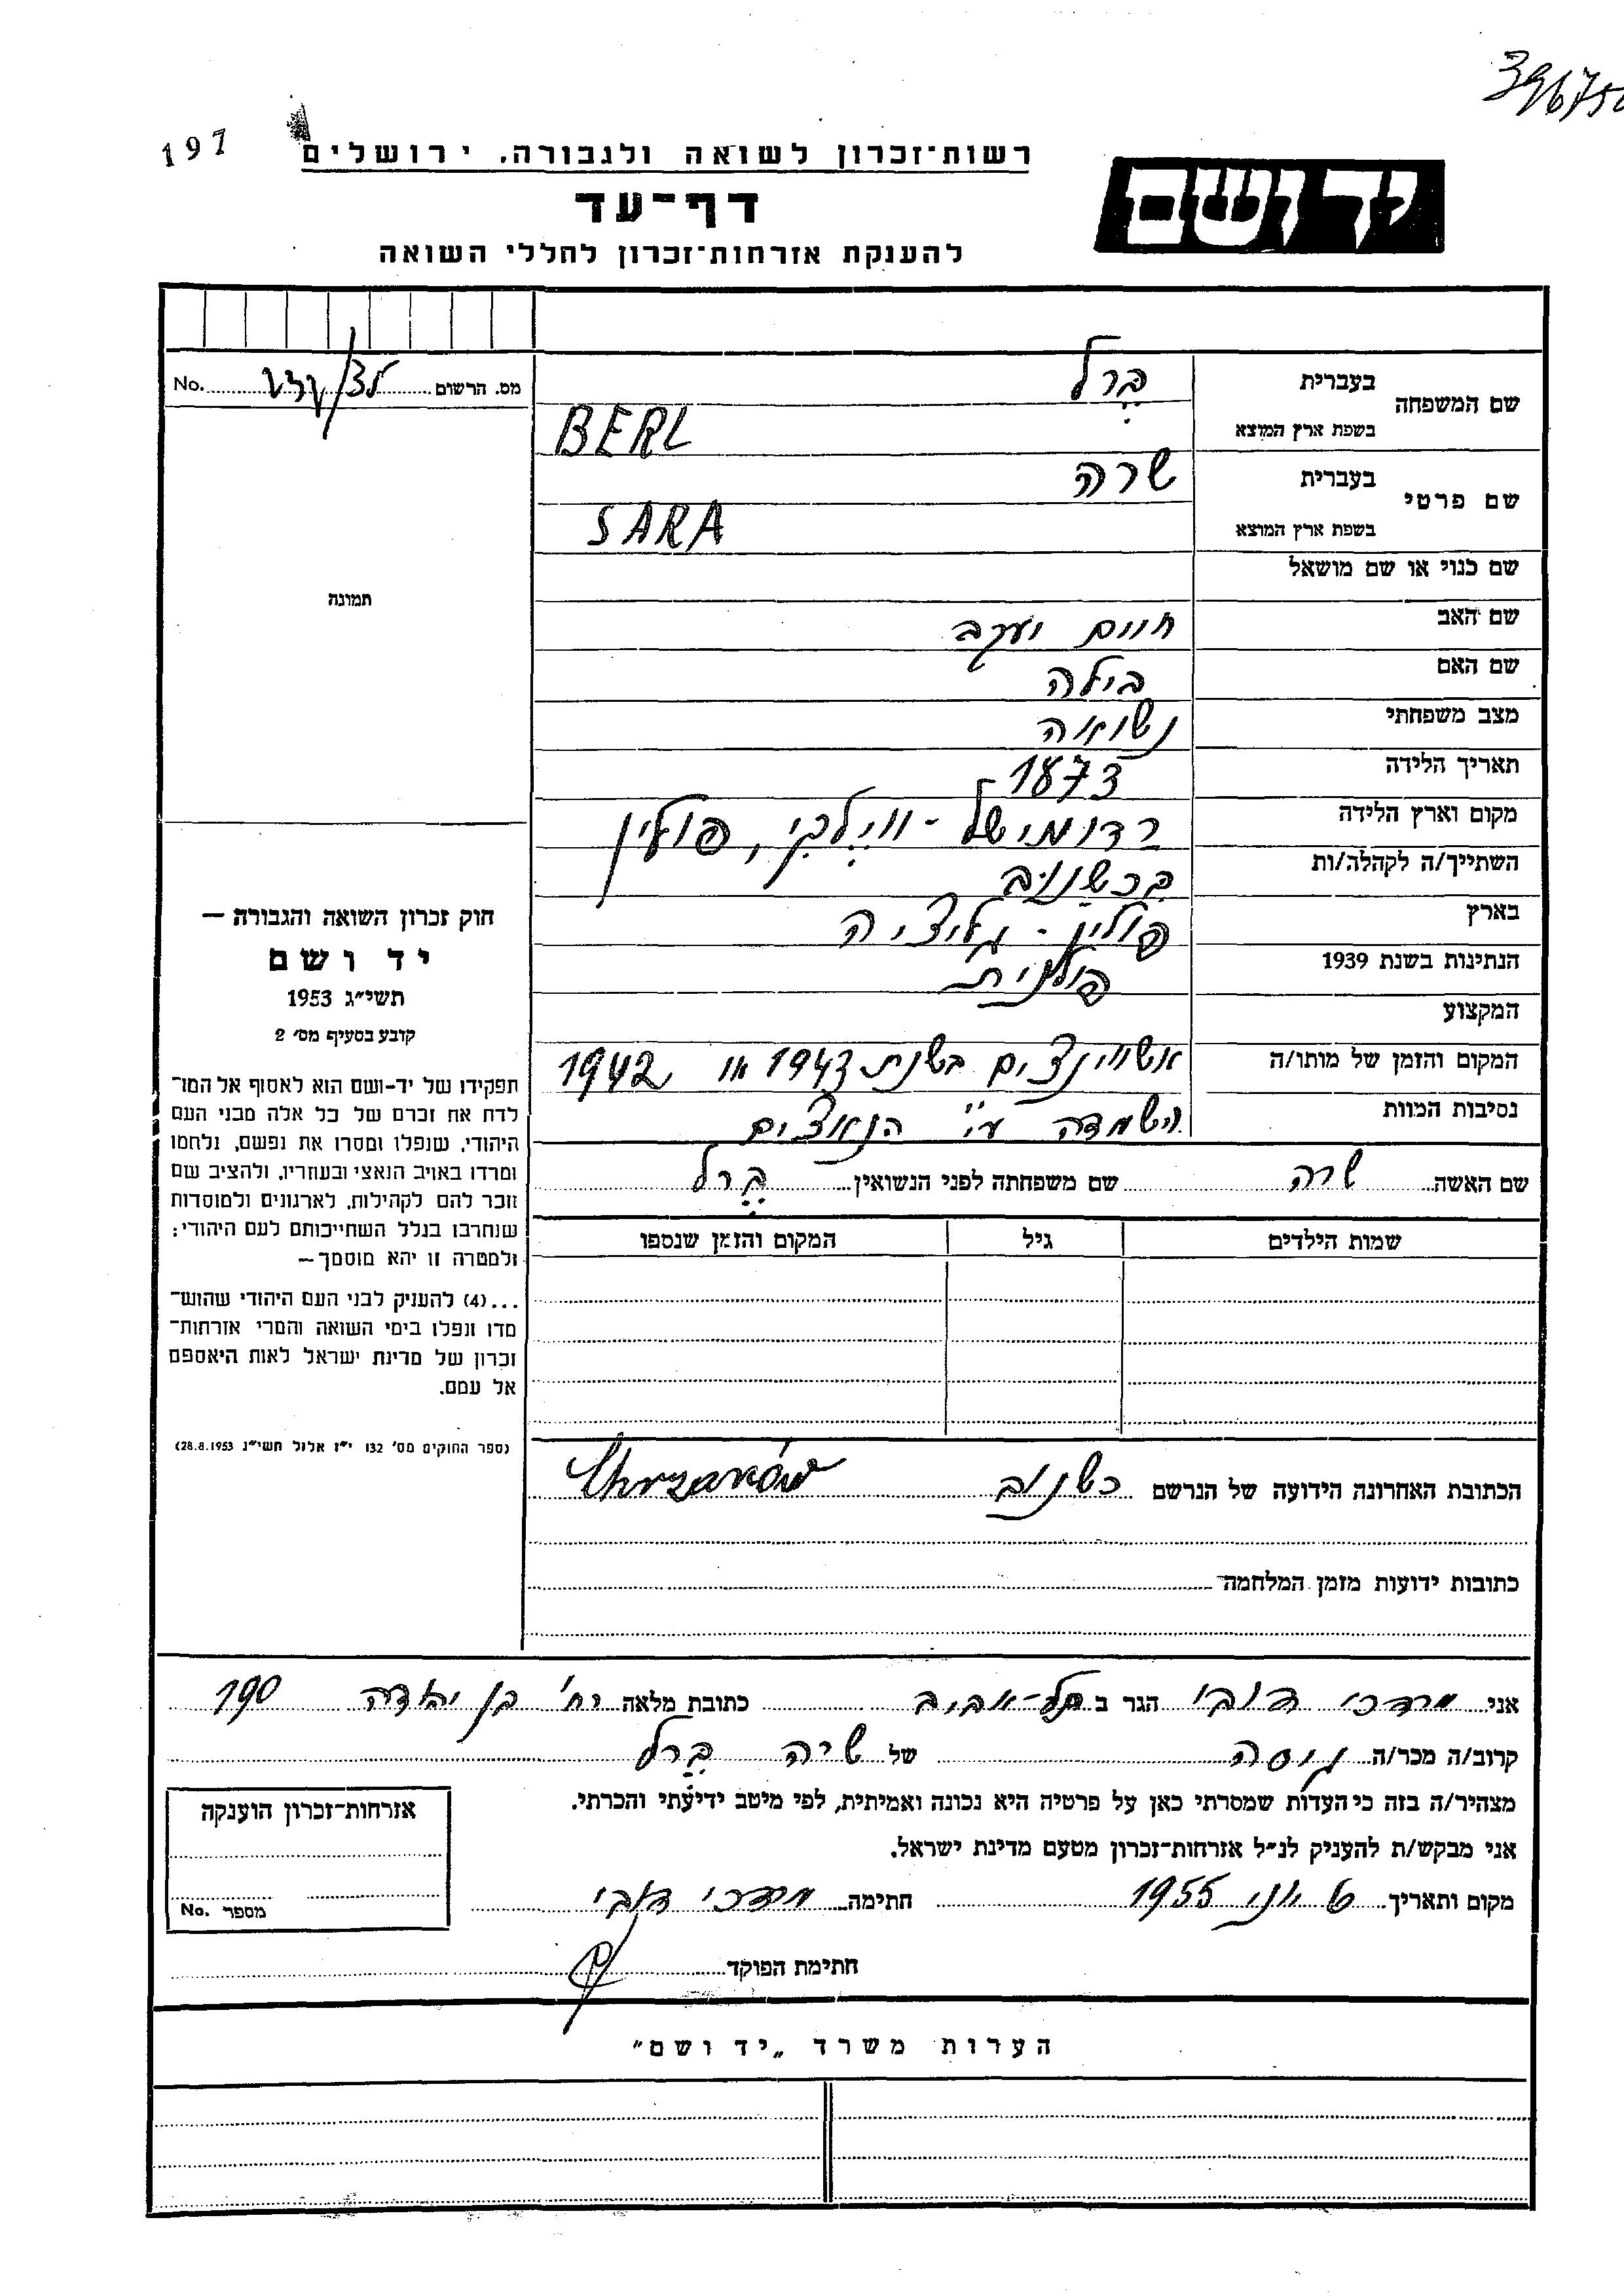 197
רשות־זכרון לשואה ולגבורה. ירושלים
יד ושם
דף־עד
להענקת אזרחות־זכרון לחללי השואה
מס. הרשום No.
שם המשפחה
בעברית ברל
בשפת ארץ המוצא BERL
שם פרטי
בעברית שרה
בשפת ארץ המוצא SARA
שם כנוי או שם מושאל
שם האב חיים יעקב
שם האם בילה
מצב משפחתי נשואה
תאריך הלידה 1873
מקום וארץ הלידה רדומישל - ווילקי, פולין
השתייך/ה לקהלה/ות כשנוב
בארץ פולין - גליציה
הנתינות בשנת 1939 פולנית
המקצוע
המקום והזמן של מותו/ה אשווינצים בשנת 1943 או 1942
נסיבות המוות השמדה ע"י הנאצים
שם האשה שרה שם משפחתה לפני הנשואין ברל
שמות הילדים גיל המקום והזמן שנספו
הכתובת האחרונה הידועה של הנרשם כשנוב Chrzanów
כתובות ידועות מזמן המלחמה
תמונה
חוק זכרון השואה והגבורה —
יד ושם
תשי״ג 1953
קובע בסעיף מס׳ 2
תפקידו של יד-ושם הוא לאסוף אל המו־
לדת את זכרם של כל אלה מבני העם
היהודי, שנפלו ומסרו את נפשם, נלחמו
ומרדו באויב הנאצי ובעוזריו, ולהציב שם
וזכר להם לקהילות, לארגונים ולמוסדות
שנחרבו בגלל השתייכותם לעם היהודי;
ולמטרה זו יהא מוסמך—
...(4) להעניק לבני העם היהודי שהוש־
מדו ונפלו בימי השואה והמרי אזרחות־
זכרון של מדינת ישראל לאות היאספם
אל עמם.
(ספר החוקים מס׳ 132 י״ז אלול תשי״ג 28.8.1953)
אני מרדכי הגר ב תל-אביב כתובת מלאה רח' בן יהודה 190
קרוב/ה מכר/ה גיסה של שרה ברל
מצהיר/ה בזה כי העדות שמסרתי כאן על פרטיה היא נכונה ואמיתית, לפי מיטב ידיעתי והכרתי.
אני מבקש/ת להעניק לנ״ל אזרחות־זכרון מטעם מדינת ישראל.
מקום ותאריך יוני 1955 חתימה מרדכי
חתימת הפוקד
אזרחות־זכרון הוענקה
מספר No.
הערות משרד „יד ושם"